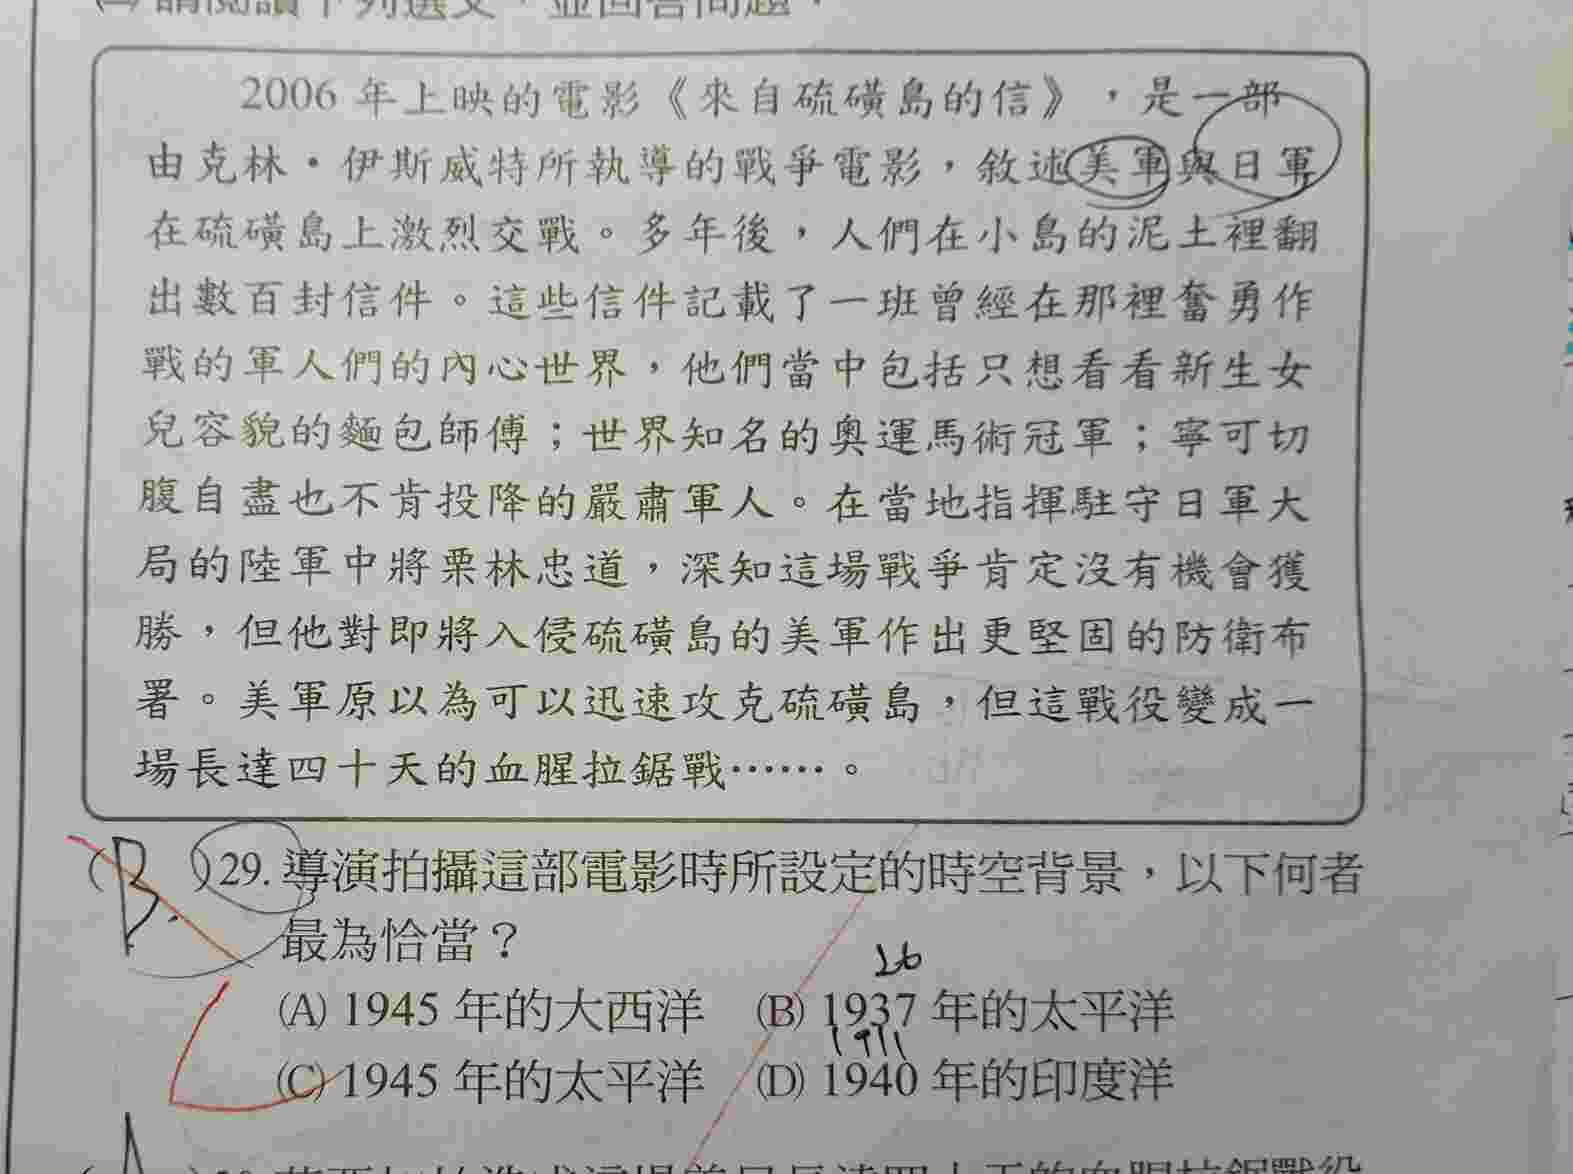 請閱讀下列選文,並回答問題:
2006 年上映的電影《來自硫磺島的信》,是一部
由克林・伊斯威特所執導的戰爭電影,敘述美軍與日軍
在硫磺島上激烈交戰。多年後,人們在小島的泥土裡翻
出數百封信件。這些信件記載了一班曾經在那裡奮勇作
戰的軍人們的內心世界,他們當中包括只想看看新生女
兒容貌的麵包師傅;世界知名的奧運馬術冠軍;寧可切
腹自盡也不肯投降的嚴肅軍人。在當地指揮駐守日軍大
局的陸軍中將栗林忠道,深知這場戰爭肯定沒有機會獲
勝,但他對即將入侵硫磺島的美軍作出更堅固的防衛布
署。美軍原以為可以迅速攻克硫磺島,但這戰役變成一
場長達四十天的血腥拉鋸戰……。
(B.)29. 導演拍攝這部電影時所設定的時空背景,以下何者
最為恰當?
26
(A) 1945 年的大西洋 (B) 1937 年的太平洋
1911
(C) 1945 年的太平洋 (D) 1940 年的印度洋